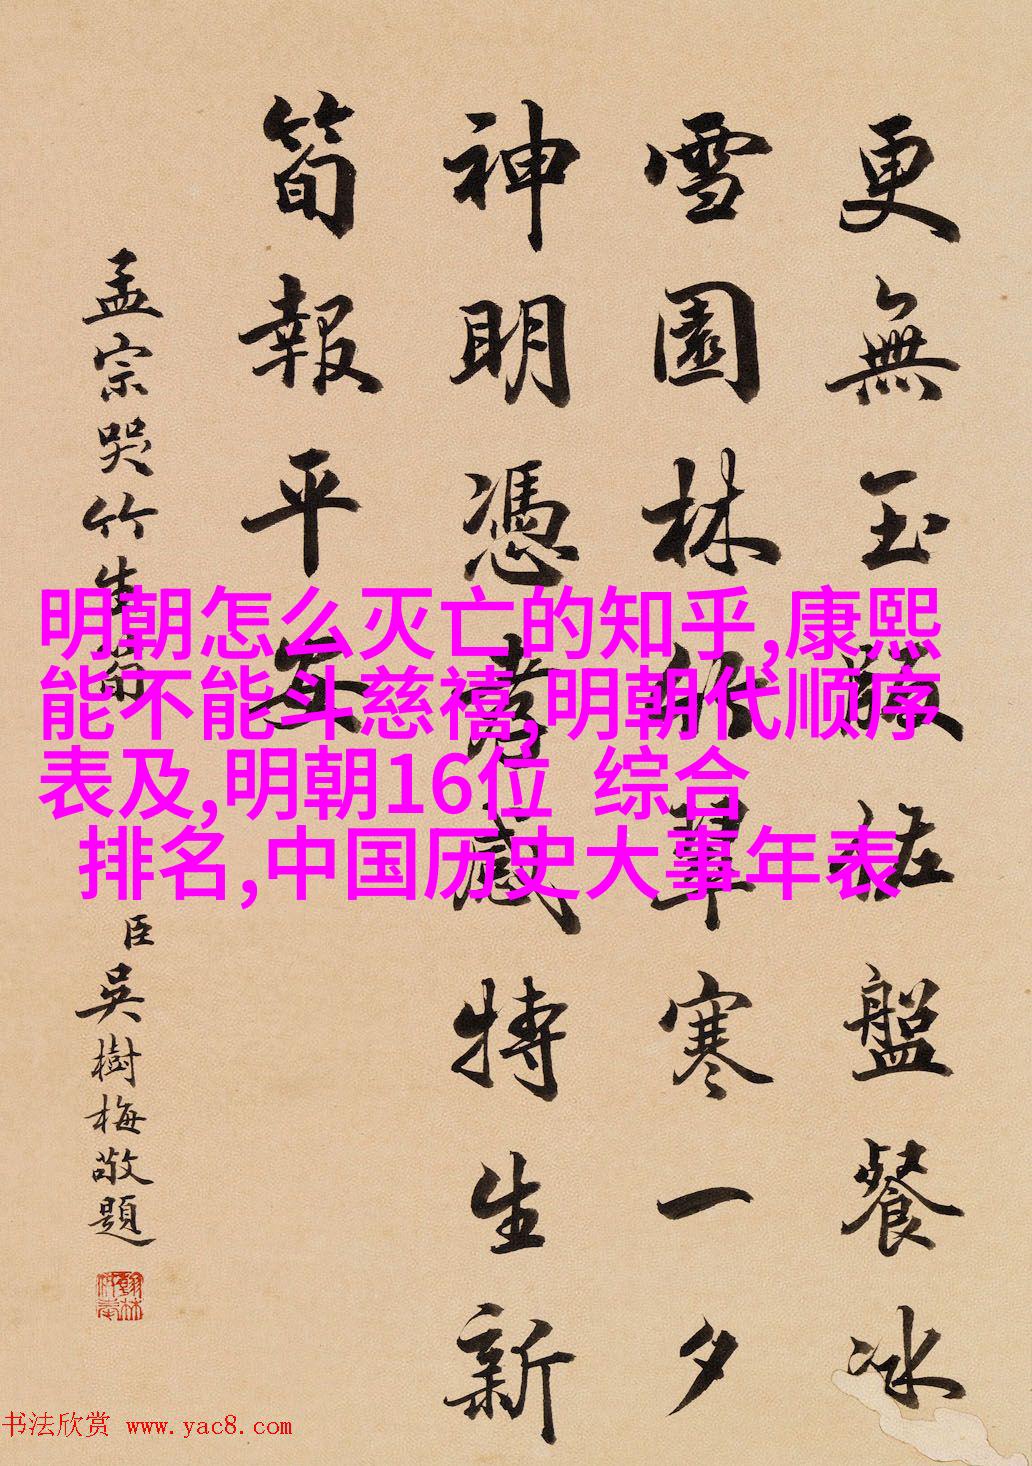 更無玉粧盤餐冰
雪園林竹寒一夕
神明憑孝感特生新
筍報平安
孟宗哭竹生筍
臣吳樹梅敬題
明朝怎么灭亡的知乎,康熙
能不能斗慈禧,明朝代顺序
表及,明朝16位 综合
排名,中国历史大事年表
书法欣赏 www.yac8.com